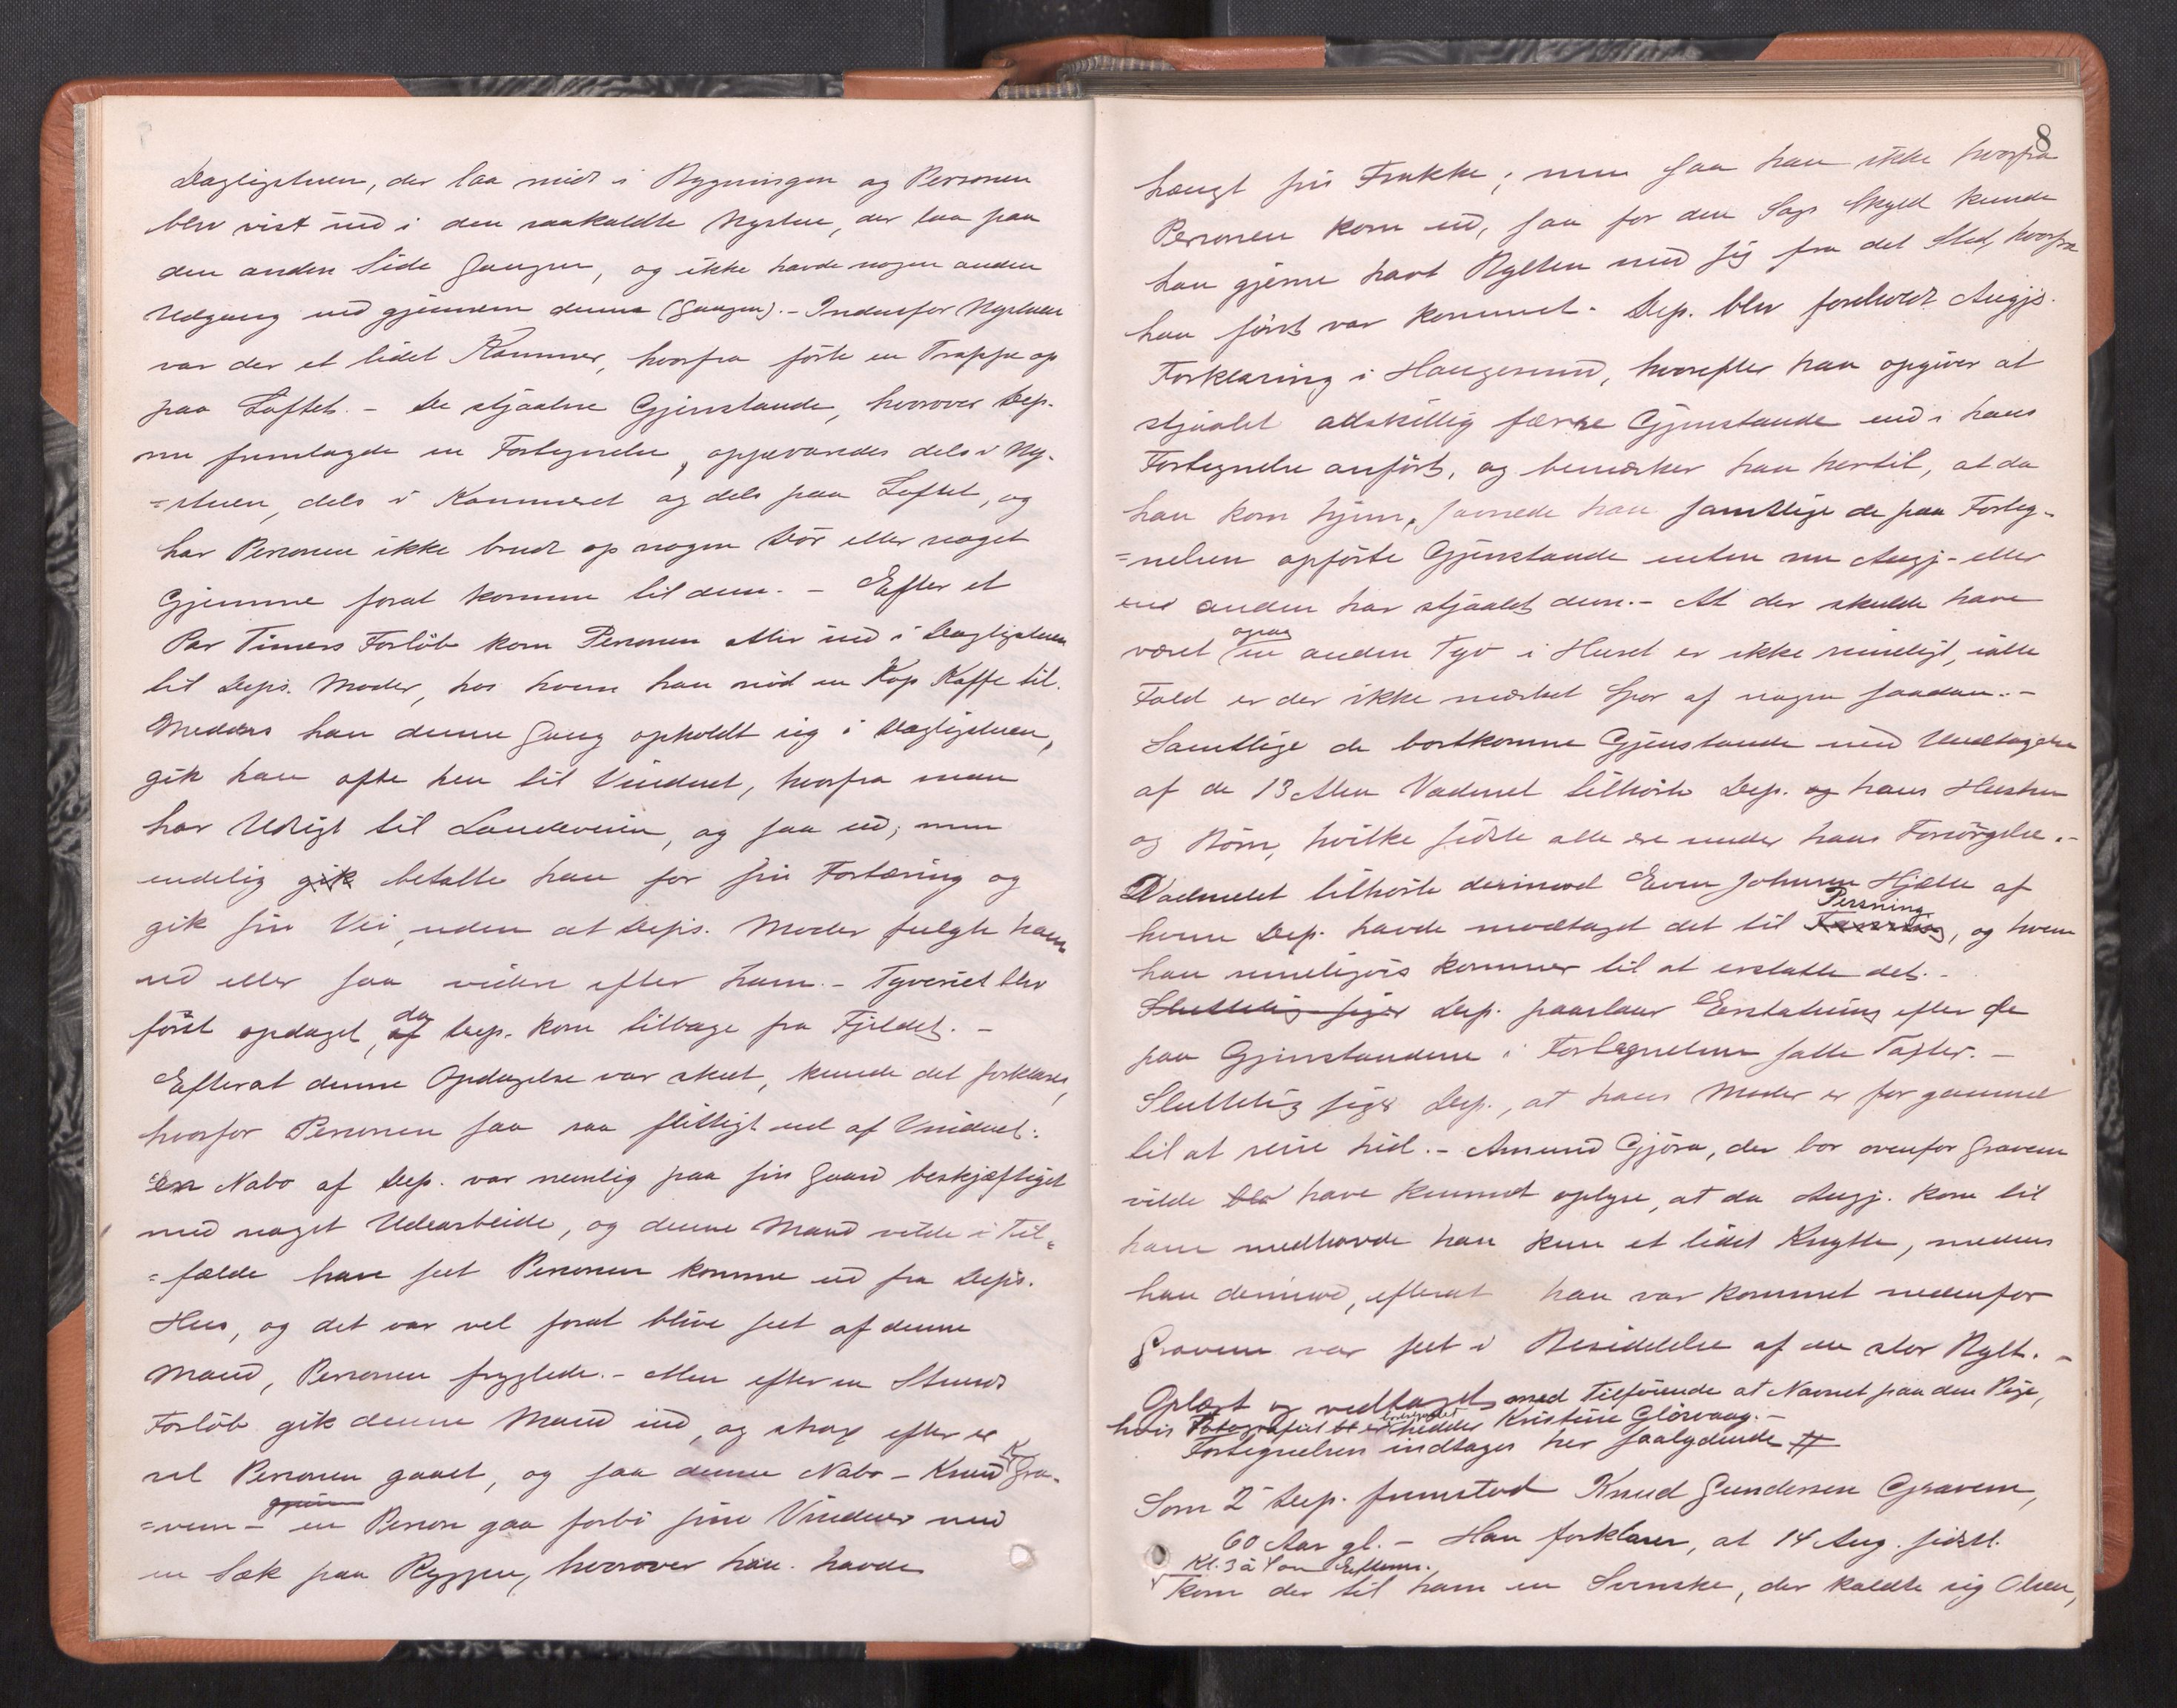 Dagligstuen, der laa midt i Bygningen og Personen
blev vist ind i den saakaldte Nystue, der laa paa
den anden Side Gangen, og ikke havde nogen anden
Udgang end gjennem denne (Gangen). - Indenfor Nystuen
var der et lidet Kammer, hvorfra förte en Trappe op
paa Loftet. - De stjaalne Gjenstande, hvorover Dep.
nu fremlagde en Fortegnelse, opbevaredes dels i Ny-
=stuen, dels i Kammeret og dels paa Loftet, og
har Personen ikke brudt op nogen Dör eller noget
Gjemme forat komme til dem. - Efter et
Par Timers Forlöb kom Personen atter ind i Dagligstuen
til Dep's. Moder, hos hvem han nöd en Kop Kaffe til.
Medens han denne Gang opholdt sig i Dagligstuen,
gik han ofte hen til Vinduet, hvorfra man
har Udsigt til Landeveien, og saa ud; men
endelig gik betalte han for sin Fortæring og
gik sin Vei, uden at Dep's. Moder fulgte ham
ud eller saa videre efter ham. - Tyveriet blev
först opdaget, af da Dep. kom tilbage fra Fjeldet. -
Efterat denne Opdagelse var skeet, kunde det forklares,
hvorfor Personen saa saa flittigt ud af Vinduet:
En Nabo af Dep. var nemlig paa sin Gaard beskjæftiget
med noget Udearbeide, og denne Mand vilde i Til=
=fælde have seet Personen komme ud fra Dep's.
Hus, og det var vel forat blive seet af denne
Mand, Personen frygtede. - Men efter en Stunds
Forlöb gik denne Mand ind, og strax efter er
vel Personen gaaet, og saa denne Nabo - Knud Gra-
=vem - en Person gaa forbi sine Vinduer med
en Sæk paa Ryggen, hvorover han havde
8
hængt sin Frakke; men saa han ikke hvorfra
Personen kom ud, saa for den Sags Skyld kunde
han gjerne havt Bylten med sig fra det Sted, hvorfra
han först var kommet. - Dep. blev foreholdt Angj's.
Forklaring i Haugesund, hvorefter han opgiver at
stjaalet adskillig færre Gjenstande end i hans
Fortegnelse anfört, og bemærker han hertil, at da
han kom hjem, savnede han samtlige de paa Forteg-
=nelsen opförte Gjenstande enten nu Angj. eller
en anden har stjaalet dem. - At der skulde have
været ogsaa en anden Tyv i Huset er ikke rimeligt, ialle
Fald er der ikke mærket Spor af nogen saadan. -
Samtlige de bortkomne Gjenstande med Undtagelse
af de 13 Alen Vadmel tilhörte Dep. og hans Hustru
og Börn, hvilke sidste alle ere under hans Forsörgelse. -
Vadmelet tilhörte derimod Even Johnsen Hjelle af
hvem Dep. havde modtaget det til Persning, og hvem
han rimeligvis kommer til at erstatte det. -
Sluttelig siger Dep. paastaar Erstatning efter de
paa Gjenstandene i Fortegnelsen satte Taxter. -
Sluttelig siger Dep., at hans Moder er for gammel
til at reise hid. - Amund Gjöra, der bor ovenfor Gravem
vilde have kunnet oplyse, at da Angj. kom til
ham medhavde han kun et lidet Knytte, medens
han derimod, efterat han var kommet nedenfor
Gravem var seet i Besiddelse af en stor Bylt. -
Oplæst og vedtaget med Tilföiende at Navnet paa den Pige,
hvis Fotografiet er bortkommet hedder Kristine Glörvaag. -
Fortegnelsen indtages her saalydende #
Som 2 Dep. fremstod Knud Gundersen Gravem,
60 Aar gl. - Han forklarer, at 14 Aug. sidstl.
Kl. 3 à 4 om Efterm.
kom der til ham en Svenske, der kaldte sig Olsen,